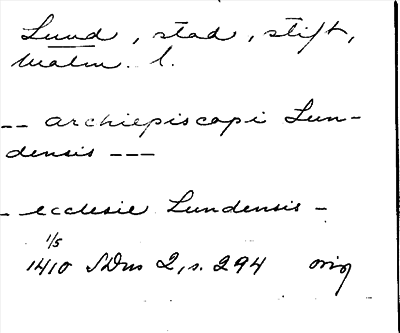 Lund, stad, stift,
Malm. l.
-- archiepiscopi Lun-
densis ---
- ecclesie Lundensis -
1/5
1410 SDns 2, s. 294 orig